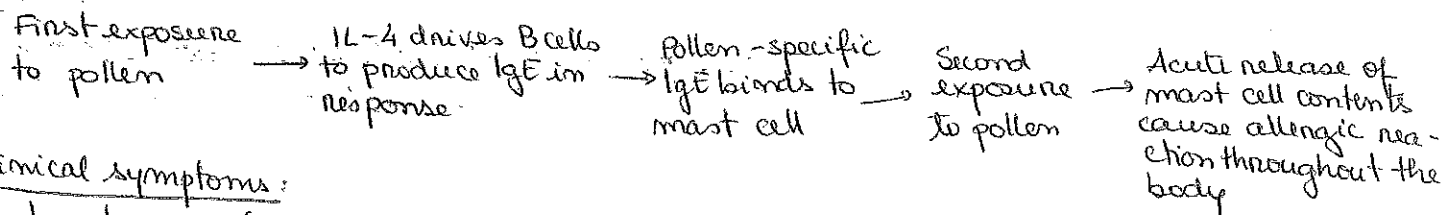 First exposure
to pollen
→ IL-4 drives B cells
to produce IgE in
response.
→ Pollen-specific
IgE binds to
mast cell
→ Second
exposure
to pollen
→ Acute release of
mast cell contents
cause allergic rea-
ction throughout the
body
inical symptoms: